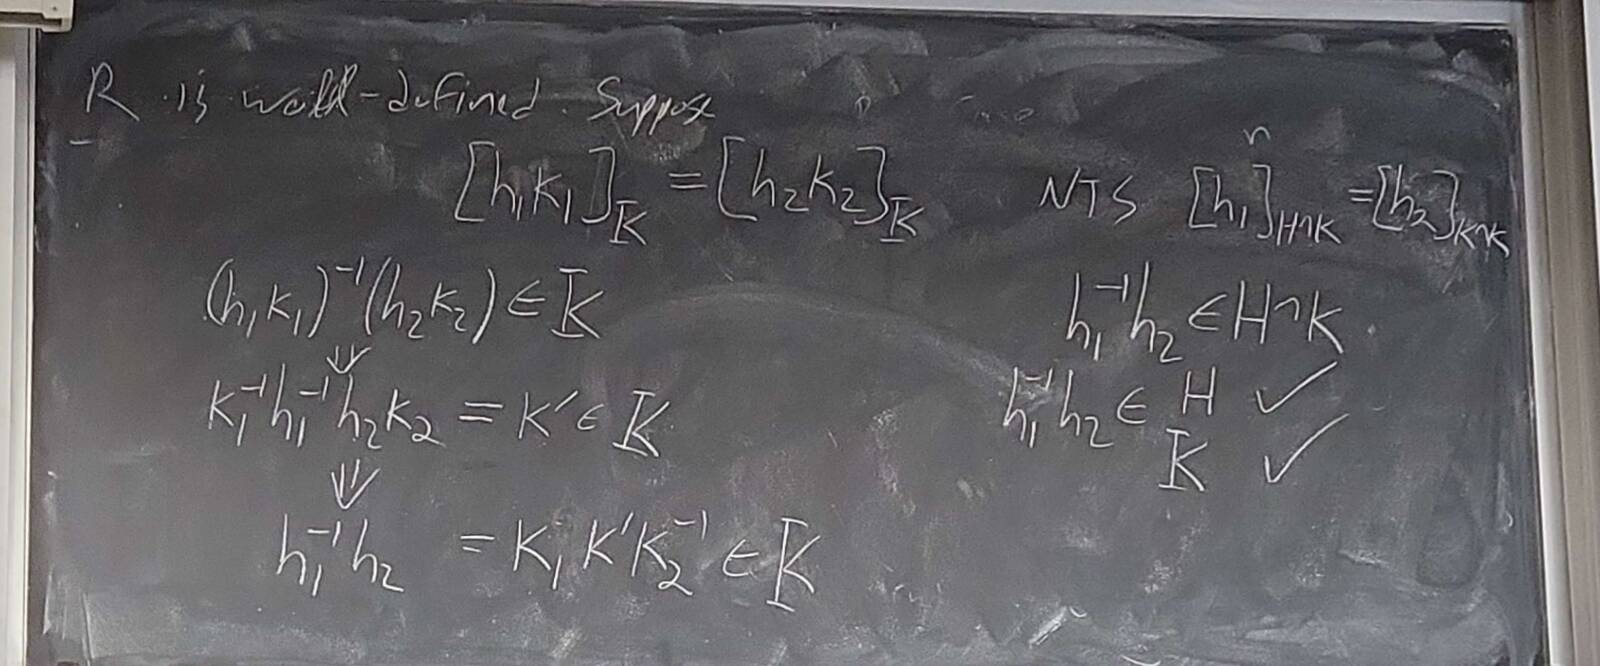 R is well-defined. Suppose
[h₁k₁]_K = [h₂k₂]_K NTS [h₁]_H∩K = [h₂]_K∩K
(h₁k₁)⁻¹(h₂k₂) ∈ K
h₁⁻¹h₂ ∈ H∩K
⇓
k₁⁻¹h₁⁻¹h₂k₂ = k' ∈ K
h₁⁻¹h₂ ∈ H ✓
K ✓
⇓
h₁⁻¹h₂ = k₁k'k₂⁻¹ ∈ K